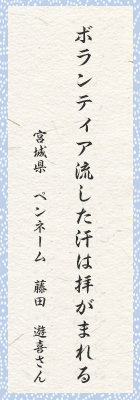 ボランティア流した汗は拝がまれる
宮城県 ペンネーム 藤田 遊喜さん